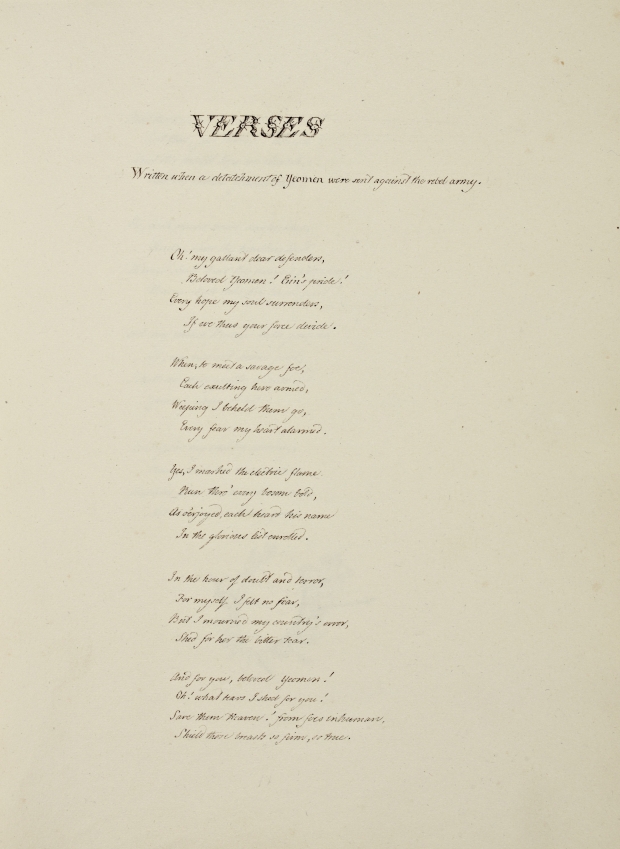 VERSES
Written when a detatchment of Yeomen were sent against the rebel army.
Oh! my gallant dear defenders,
Beloved Yeomen! Erin's pride!
Every hope my soul surrenders,
If we thus your force divide.
When, to meet a savage foe,
Each exulting hero armed,
Weeping I beheld them go,
Every fear my heart alarmed.
Yes, I marked the electric flame
Run thro' every bosom bold,
As o'erjoyed, each heard his name
In the glorious list enrolled.
In the hour of doubt and terror,
For myself I felt no fear,
But I mourned my country's error,
Shed for her the bitter tear.
And for you, beloved Yeomen!
Oh! what tears I shed for you!
Save them Heaven! from foes inhuman,
Shield those breasts so firm, so true.